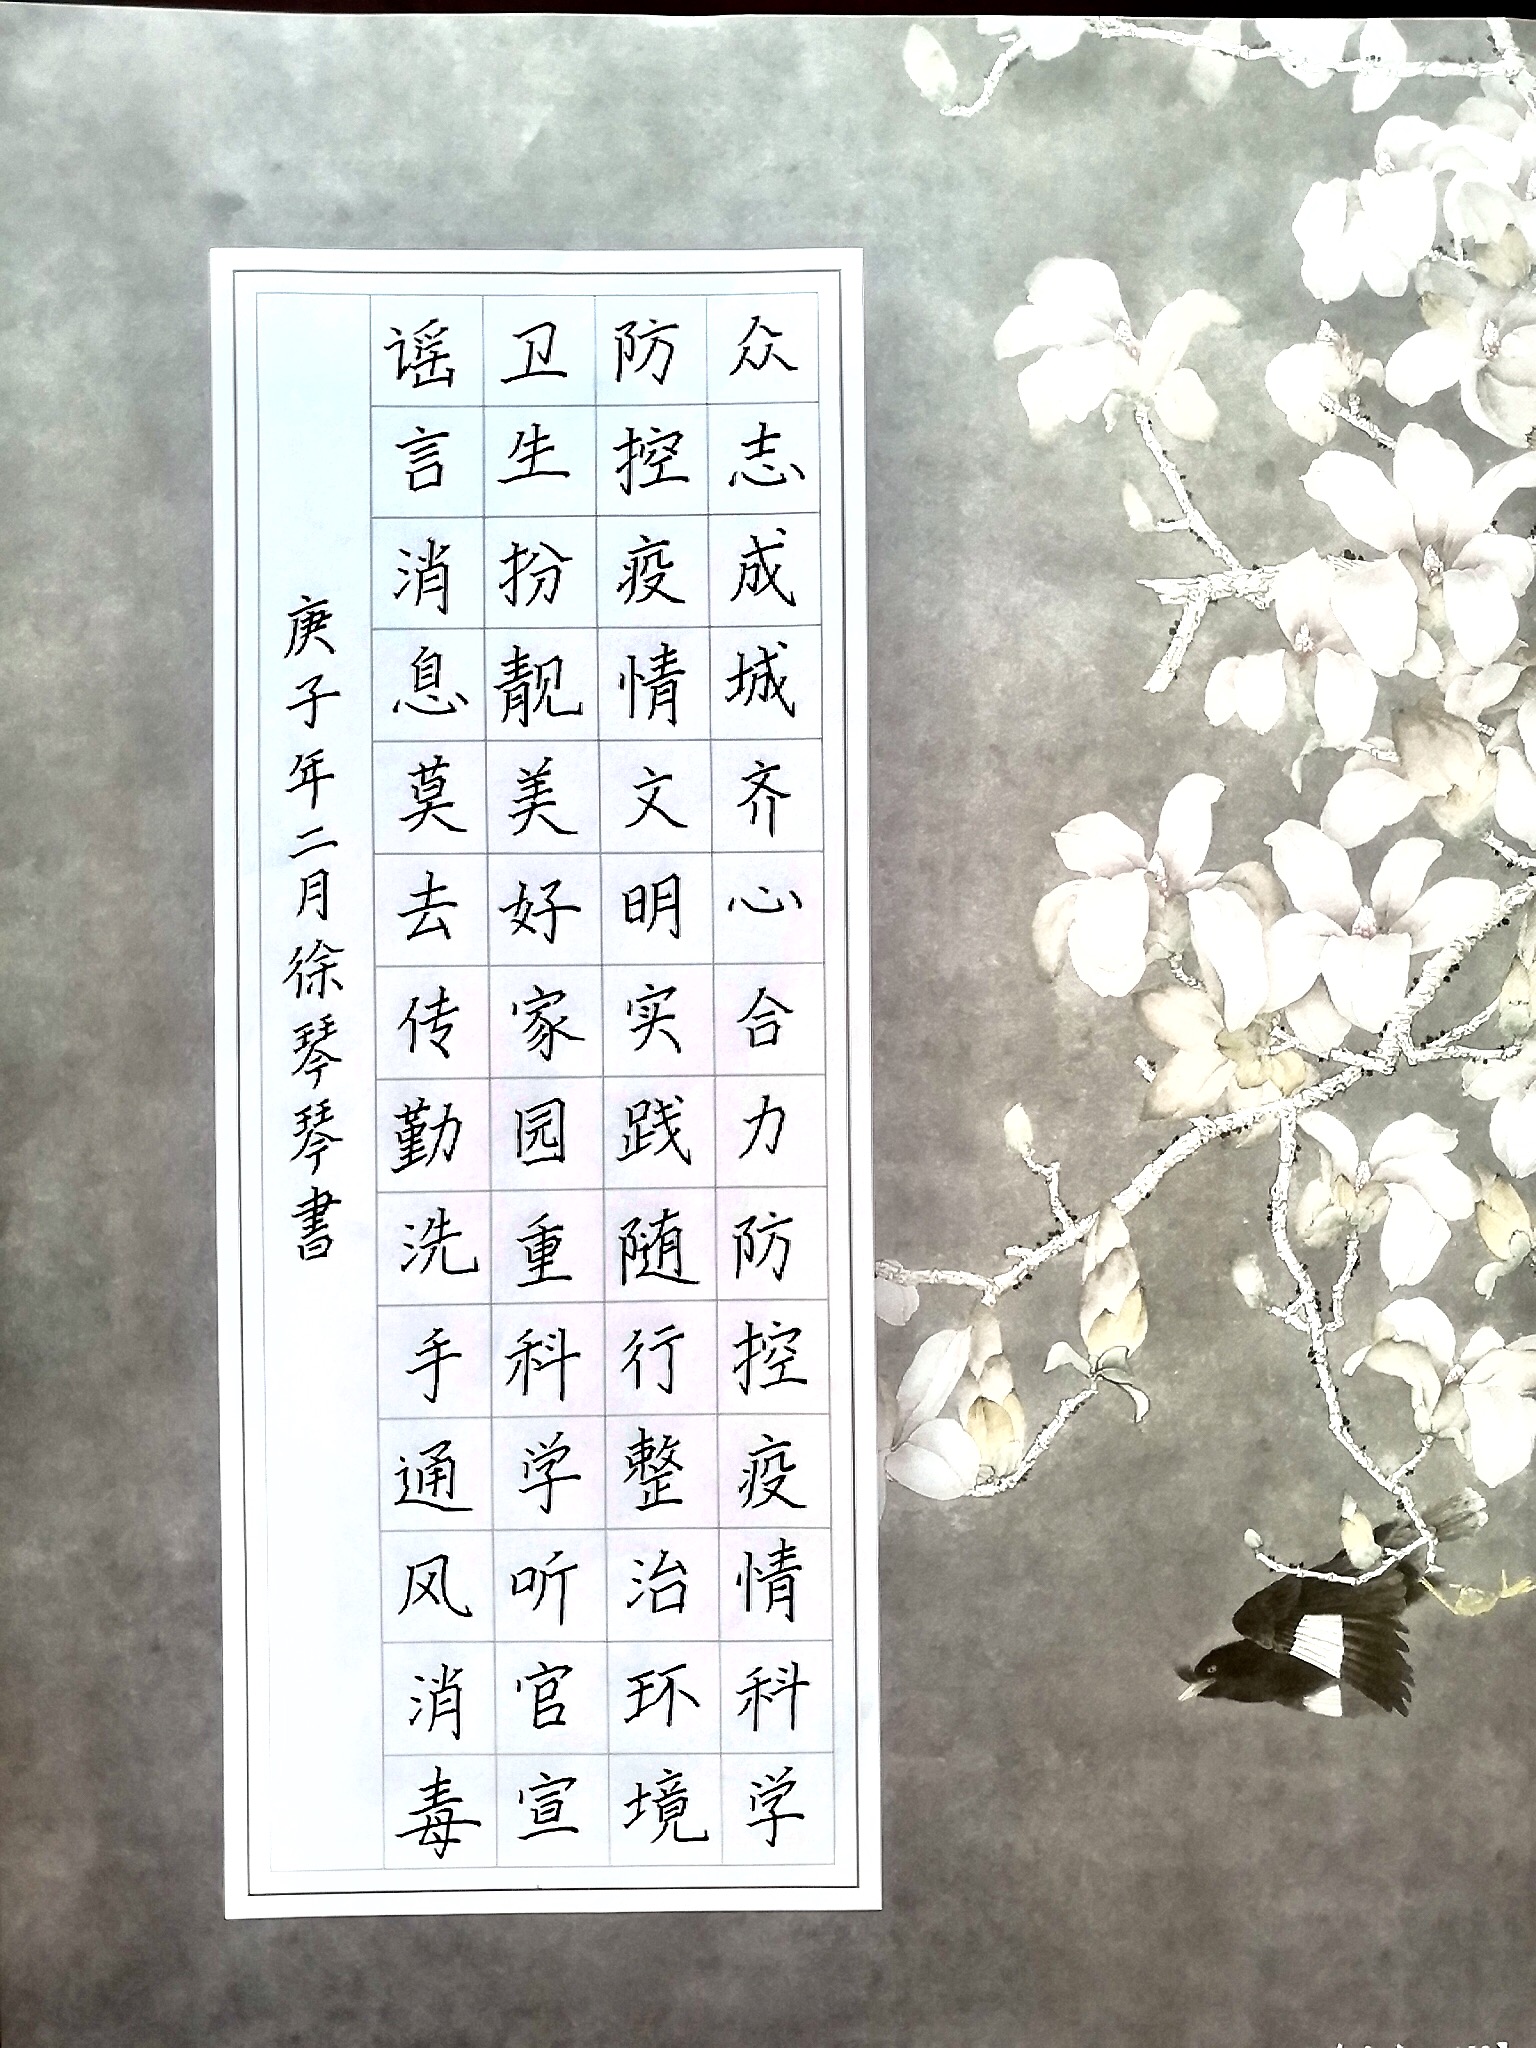 众志成城齐心合力防控疫情科学
防控疫情文明实践随行整治环境
卫生扮靓美好家园重科学听官宣
谣言消息莫去传勤洗手通风消毒
庚子年二月徐琴琴書